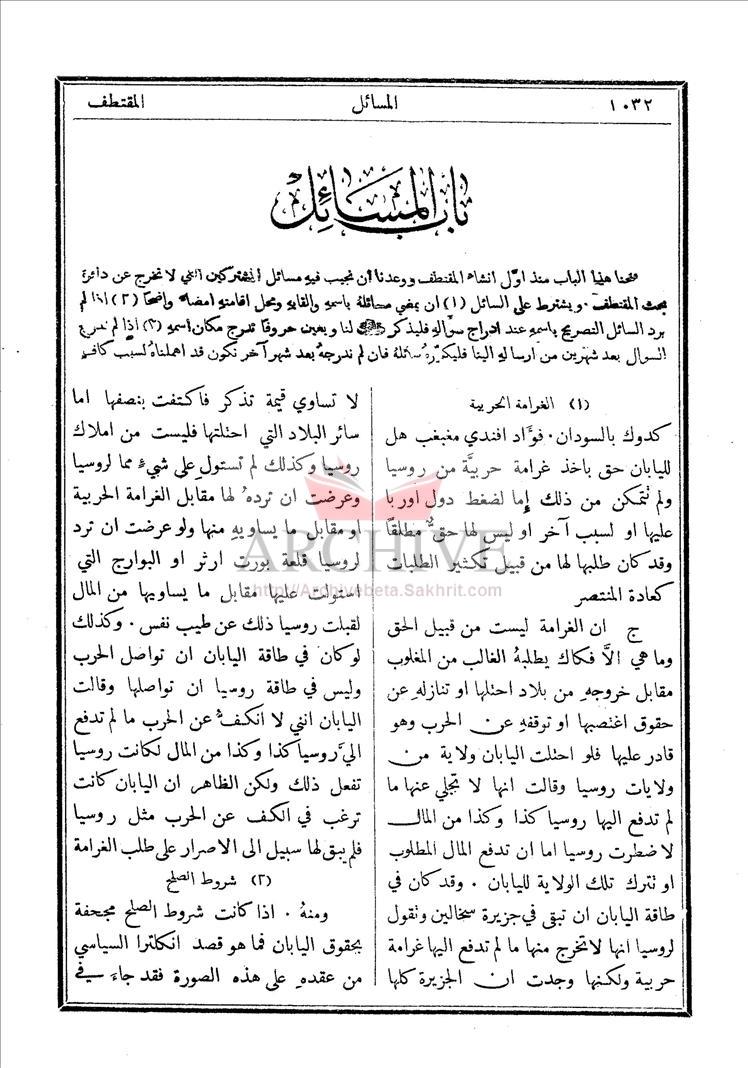 ١٠٣٢
المسائل
المقتطف
باب المسائل
فتحنا هذا الباب منذ اوّل انشاء المقتطف ووعدنا ان نجيب فيه مسائل المشتركين التي لا تخرج عن دائرة
بحث المقتطف. ويشترط على السائل (١) ان يمضي مسائله باسمه والقابه ومحل اقامته امضاء واضحًا (٢) اذا لم
يرد السائل التصريح باسمه عند ادراج سؤاله فليذكر ذلك لنا ويعين حروفًا تدرج مكان اسمه (٣) اذا لم ندرج
السوال بعد شهرين من ارساله الينا فليكرّره سائله فان لم ندرجه بعد شهر آخر نكون قد اهملناه لسبب كافٍ
(١) الغرامة الحربية
كدوك بالسودان. فوَّاد افندي مغبغب هل
لليابان حق باخذ غرامة حربيَّة من روسيا
ولم تتمكن من ذلك إما لضغط دول اوربا
عليها او لسبب آخر او ليس لها حق مطلقًا
وقد كان طلبها لها من قبيل تكثير الطلبات
كعادة المنتصر
ج ان الغرامة ليست من قبيل الحق
وما هي الاَّ فكاك يطلبهُ الغالب من المغلوب
مقابل خروجهِ من بلاد احتلها او تنازله عن
حقوق اغتصبها او توقفهِ عن الحرب وهو
قادر عليها فلو احتلت اليابان ولاية من
ولايات روسيا وقالت انها لا تجلي عنها ما
لم تدفع اليها روسيا كذا وكذا من المال
لاضطرت روسيا اما ان تدفع المال المطلوب
او تترك تلك الولاية لليابان. وقد كان في
طاقة اليابان ان تبقى في جزيرة سخالين وتقول
لروسيا انها لا تخرج منها ما لم تدفع اليها غرامة
حربية ولكنها وجدت ان الجزيرة كلها
لا تساوي قيمة تذكر فاكتفت بنصفها اما
سائر البلاد التي احتلتها فليست من املاك
روسيا وكذلك لم تستولِ على شيءٍ مما لروسيا
وعرضت ان تردهُ لها مقابل الغرامة الحربية
او مقابل ما يساويهِ منها ولو عرضت ان ترد
لروسيا قلعة بورت ارثر او البوارج التي
استولت عليها مقابل ما يساويها من المال
لقبلت روسيا ذلك عن طيب نفس. وكذلك
لو كان في طاقة اليابان ان تواصل الحرب
وليس في طاقة روسيا ان تواصلها وقالت
اليابان انني لا انكفُّ عن الحرب ما لم تدفع
اليَّ روسيا كذا وكذا من المال لكانت روسيا
تفعل ذلك ولكن الظاهر ان اليابان كانت
ترغب في الكف عن الحرب مثل روسيا
فلم يبق لها سبيل الى الاصرار على طلب الغرامة
(٢) شروط الصلح
ومنهُ. اذا كانت شروط الصلح مجحفة
بحقوق اليابان فما هو قصد انكلترا السياسي
من عقدهِ على هذه الصورة فقد جاءَ في
ARCHIVE
http://Archivebeta.Sakhrit.com